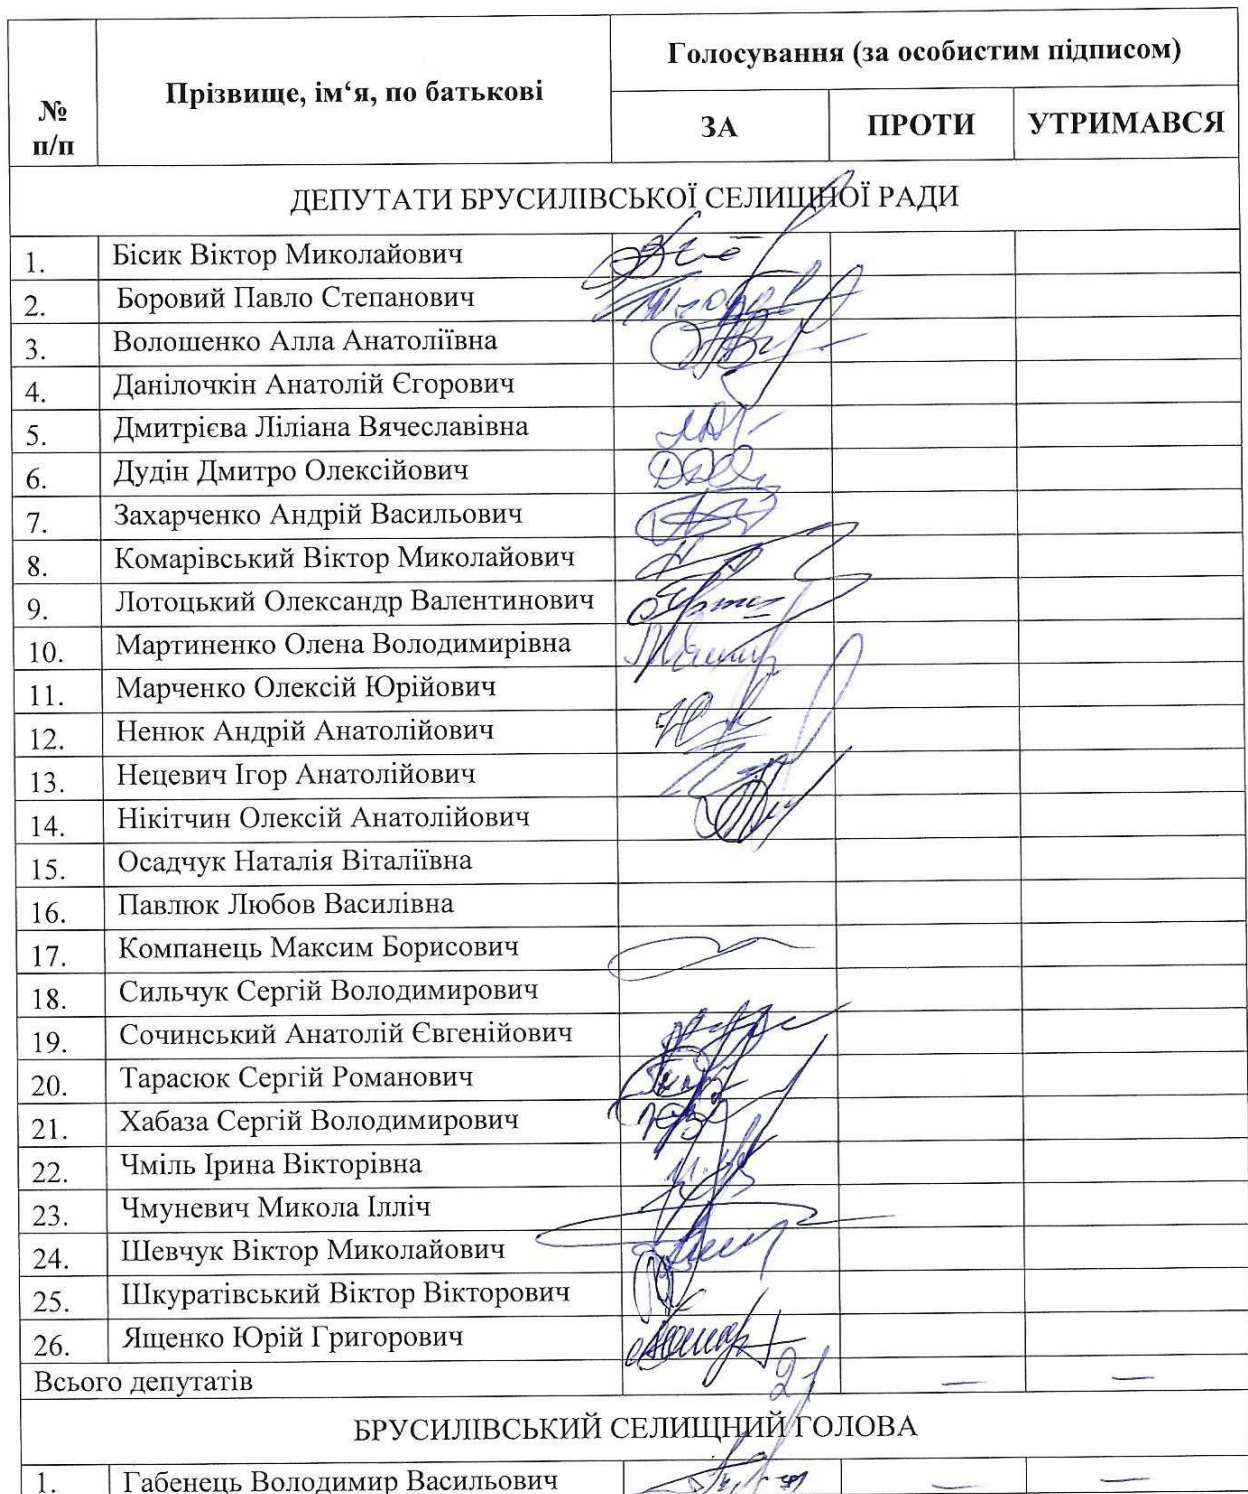 № п/п
Прізвище, ім‘я, по батькові
Голосування (за особистим підписом)
ЗА ПРОТИ УТРИМАВСЯ
ДЕПУТАТИ БРУСИЛІВСЬКОЇ СЕЛИЩНОЇ РАДИ
1. Бісик Віктор Миколайович
2. Боровий Павло Степанович
3. Волошенко Алла Анатоліївна
4. Данілочкін Анатолій Єгорович
5. Дмитрієва Ліліана Вячеславівна
6. Дудін Дмитро Олексійович
7. Захарченко Андрій Васильович
8. Комарівський Віктор Миколайович
9. Лотоцький Олександр Валентинович
10. Мартиненко Олена Володимирівна
11. Марченко Олексій Юрійович
12. Ненюк Андрій Анатолійович
13. Нецевич Ігор Анатолійович
14. Нікітчин Олексій Анатолійович
15. Осадчук Наталія Віталіївна
16. Павлюк Любов Василівна
17. Компанець Максим Борисович
18. Сильчук Сергій Володимирович
19. Сочинський Анатолій Євгенійович
20. Тарасюк Сергій Романович
21. Хабаза Сергій Володимирович
22. Чміль Ірина Вікторівна
23. Чмуневич Микола Ілліч
24. Шевчук Віктор Миколайович
25. Шкуратівський Віктор Вікторович
26. Ященко Юрій Григорович
Всього депутатів 21 — —
БРУСИЛІВСЬКИЙ СЕЛИЩНИЙ ГОЛОВА
1. Габенець Володимир Васильович — —